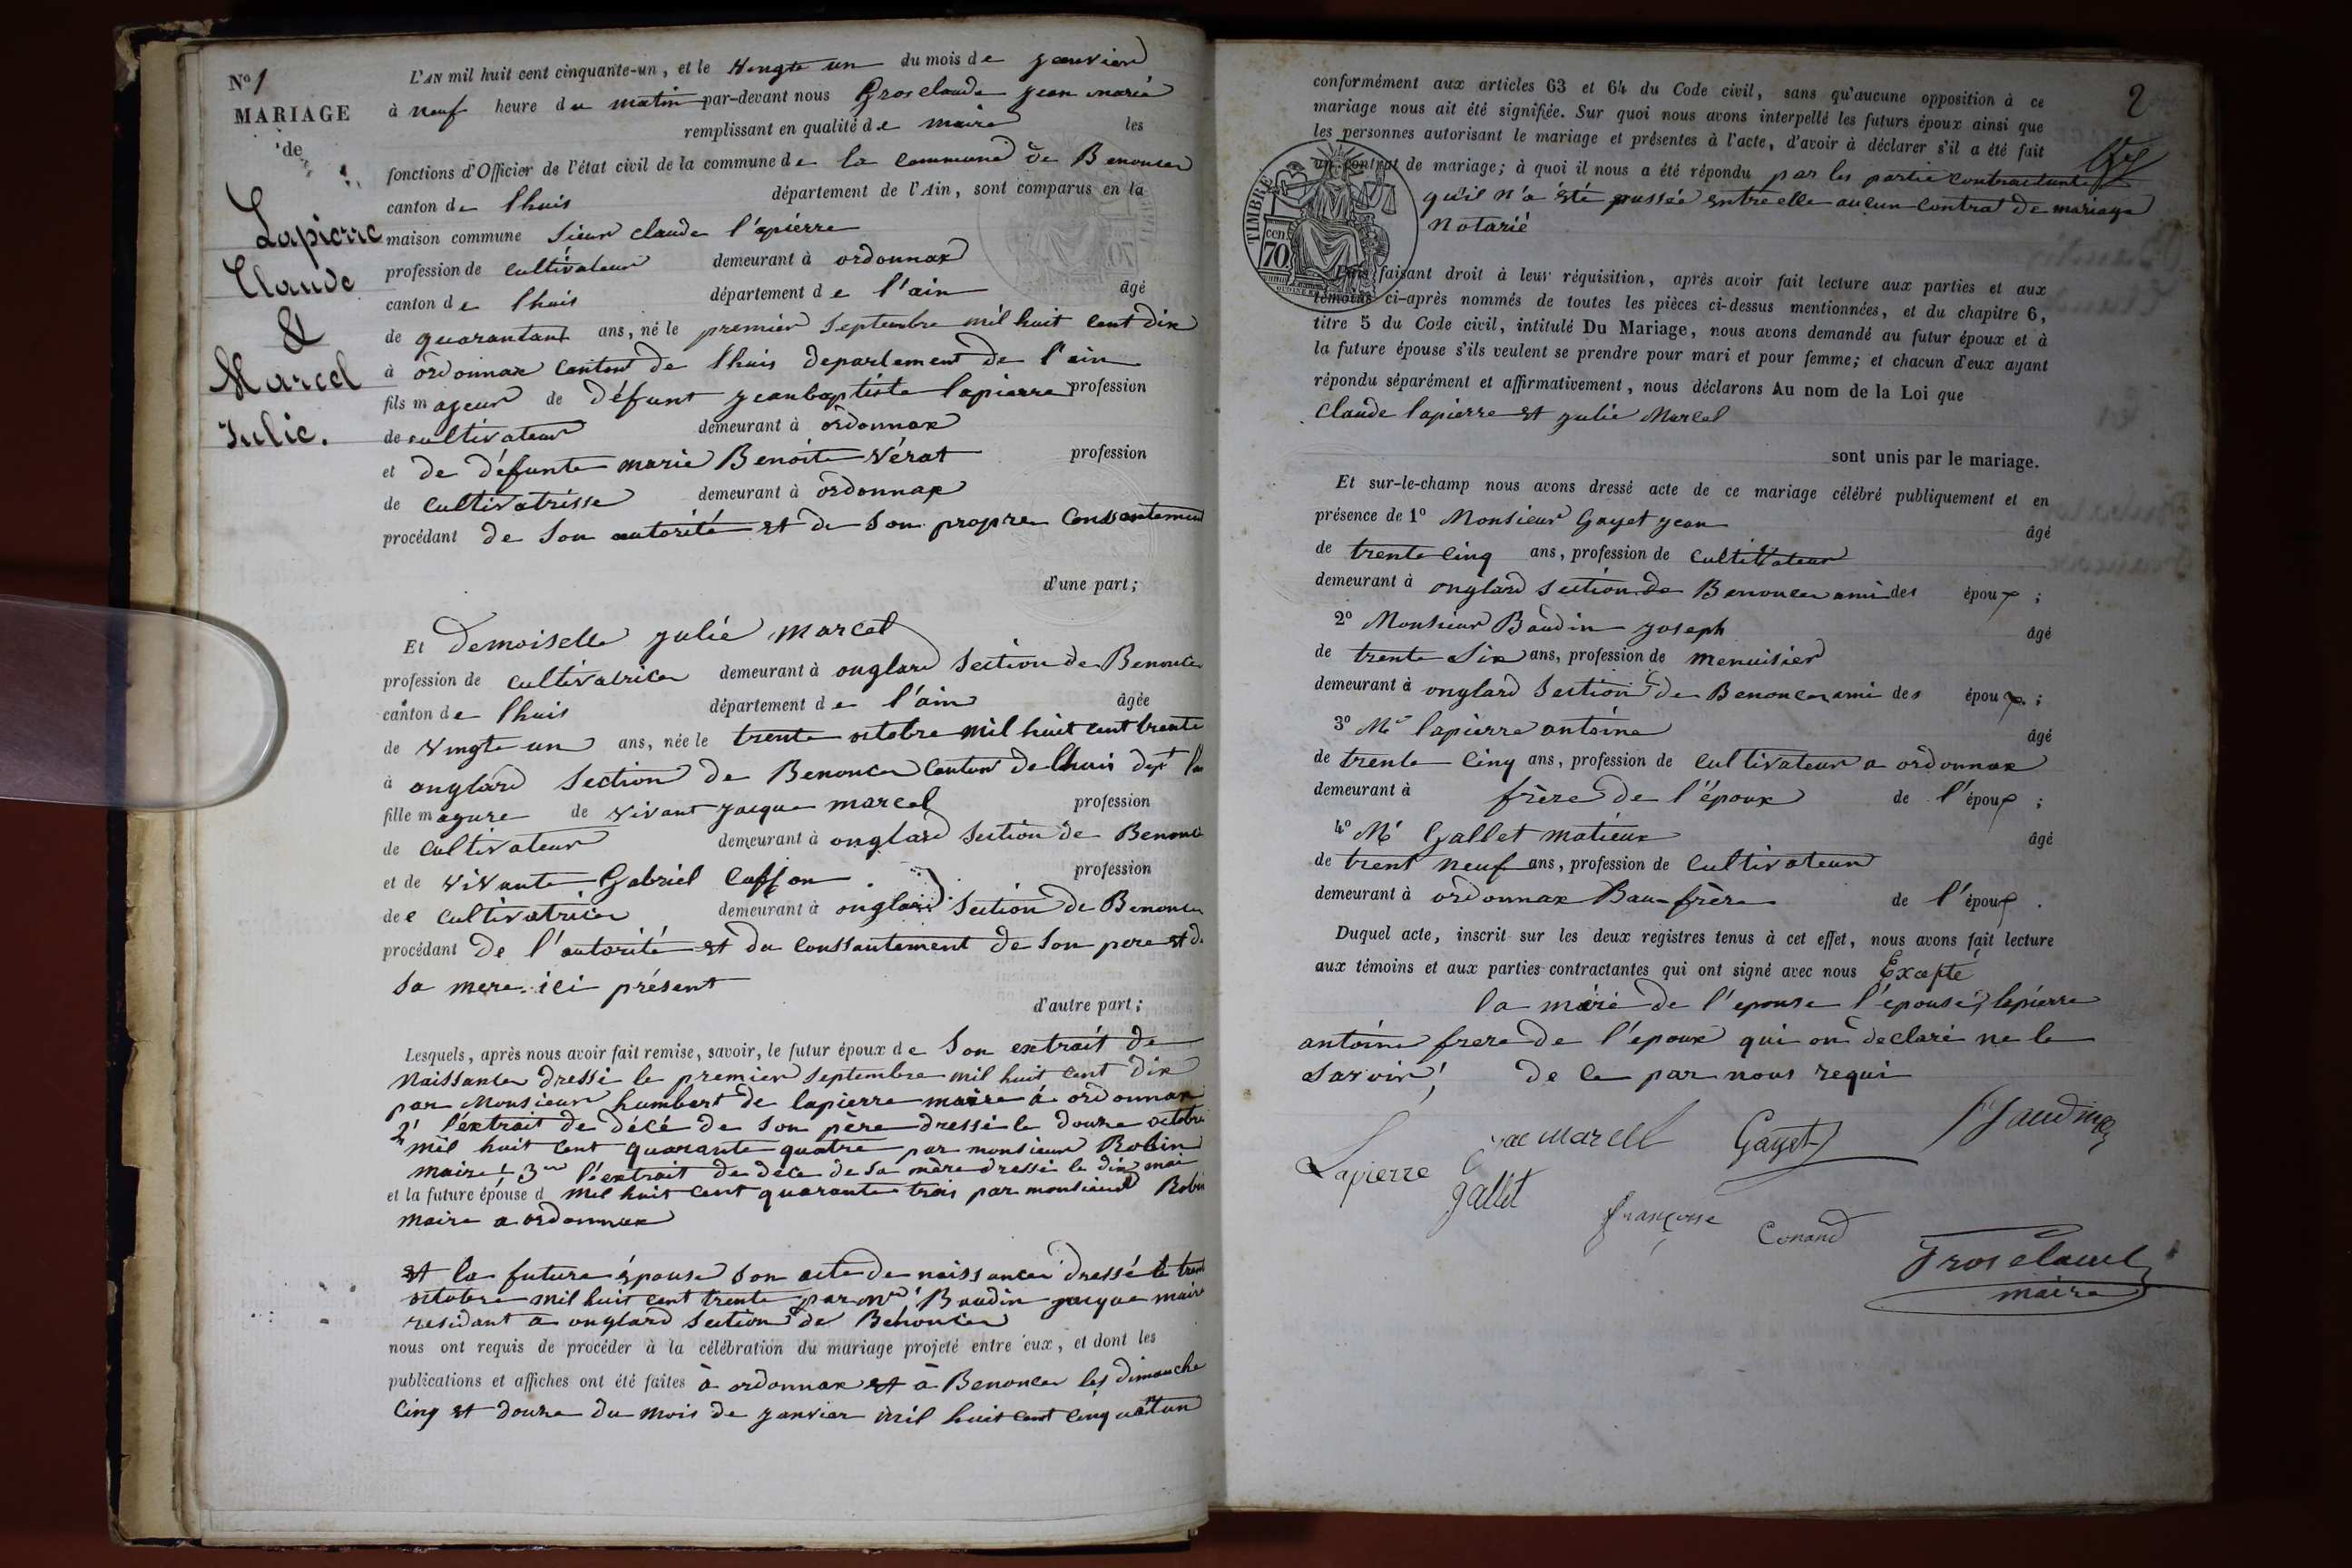 No 1
MARIAGE
de
Lapierre
Claude
&
Marcel
Julie.
L'AN mil huit cent cinquante-un, et le Vengte un du mois de janvier
à neuf heure du matin par-devant nous Grosclaude jean marie
remplissant en qualité de maire les
fonctions d'Officier de l'état civil de la commune de la commune de Benonces
canton de lhuis département de l'Ain, sont comparus en la
maison commune Sieur claude l'apiérre
profession de cultivateur demeurant à ordonnax
canton de lhuis département de l'ain âgé
de quarantant ans, né le premier Septembre mil huit cent dix
à ordonnax canton de lhuis departement de l'ain
fils majeur de défunt jeanbaptiste lapierre profession
de cultivateur demeurant à ordonnax
et de défunte marie Benoite Vérat profession
de cultivatrisse demeurant à ordonnax
procédant de Son autorité et de Son propre Conssantement
d'une part;
Et Demoiselle julie marcel
profession de cultivatrice demeurant à onglard Section de Benonce
canton de lhuis département de l'ain âgée
de Vingte un ans, née le trente octobre mil huit cent trente
à onglard Section de Benonce Canton de lhuis dept l'ai
fille majure de vivant jacque marcel profession
de cultivateur demeurant à onglard Section de Benonce
et de vivante Gabriel Cusson profession
dee cultivatrice demeurant à onglard Section de Benonce
procédant de l'autorité et du conssantement de Son pere et de
Sa mere ici présent
d'autre part;
Lesquels, après nous avoir fait remise, savoir, le futur époux de Son extrait de
Naissance dressé le premier Septembre mil huit cent dix
par Monsieur humbert de lapierre maire à ordonnax
2' l'extrait de décé de Son père dressé le douze octobre
mil huit cent quarante quatre par monsieur Robin
maire! 3em l'extrait de déce de Sa mère dressé le dix mai
et la future épouse d mil huit cent quarante trois par monsieur Robin
maire a ordonnax
et la future épouse Son acte de naissance dressé le trente
octobre mil huit cent trente par mr Baudin jacque maire
residant a onglard Section de Benonce
nous ont requis de procéder à la célébration du mariage projeté entre eux, et dont les
publications et affiches ont été faites à ordonnax et a Benonce les dimanche
Cinq et douze du mois de janvier mil huit cent cinquantun
2
conformément aux articles 63 et 64 du Code civil, sans qu'aucune opposition à ce
mariage nous ait été signifiée. Sur quoi nous avons interpellé les futurs époux ainsi que
les personnes autorisant le mariage et présentes à l'acte, d'avoir à déclarer s'il a été fait
un contrat de mariage; à quoi il nous a été répondu par les partie contractante
qu'il n'a été passée entre elle aucun contrat de mariage
notarié
TIMBRE
70 cen
Puis faisant droit à leur réquisition, après avoir fait lecture aux parties et aux
témoins ci-après nommés de toutes les pièces ci-dessus mentionnées, et du chapitre 6,
titre 5 du Code civil, intitulé Du Mariage, nous avons demandé au futur époux et à
la future épouse s'ils veulent se prendre pour mari et pour femme; et chacun d'eux ayant
répondu séparément et affirmativement, nous déclarons Au nom de la Loi que
Claude lapierre et julie Marcel
sont unis par le mariage.
Et sur-le-champ nous avons dressé acte de ce mariage célébré publiquement et en
présence de 1o Monsieur Gayet jean âgé
de trente cinq ans, profession de cultivateur
demeurant à onglard Section de Benonce ami des époux ;
2o Monsieur Baudin joseph âgé
de trente Six ans, profession de menuisier
demeurant à onglard Section de Benonce ami des époux ;
3o Mr lapierre antoine âgé
de trente cinq ans, profession de cultivateur a ordonnax
demeurant à frère de l'époux de l'époux ;
4o Mr Gallet matieux âgé
de trent neuf ans, profession de cultivateur
demeurant à ordonnax Bau-frère de l'époux .
Duquel acte, inscrit sur les deux registres tenus à cet effet, nous avons fait lecture
aux témoins et aux parties contractantes qui ont signé avec nous Excepté
la mère de l'epouse l'epouse, lapierre
antoine frere de l'epoux qui on declaré ne le
Savoir! de ce par nous requi
Lapierre
jac marcel
Gayet
Gallet
françoise
Conand
Grosclaude
maire